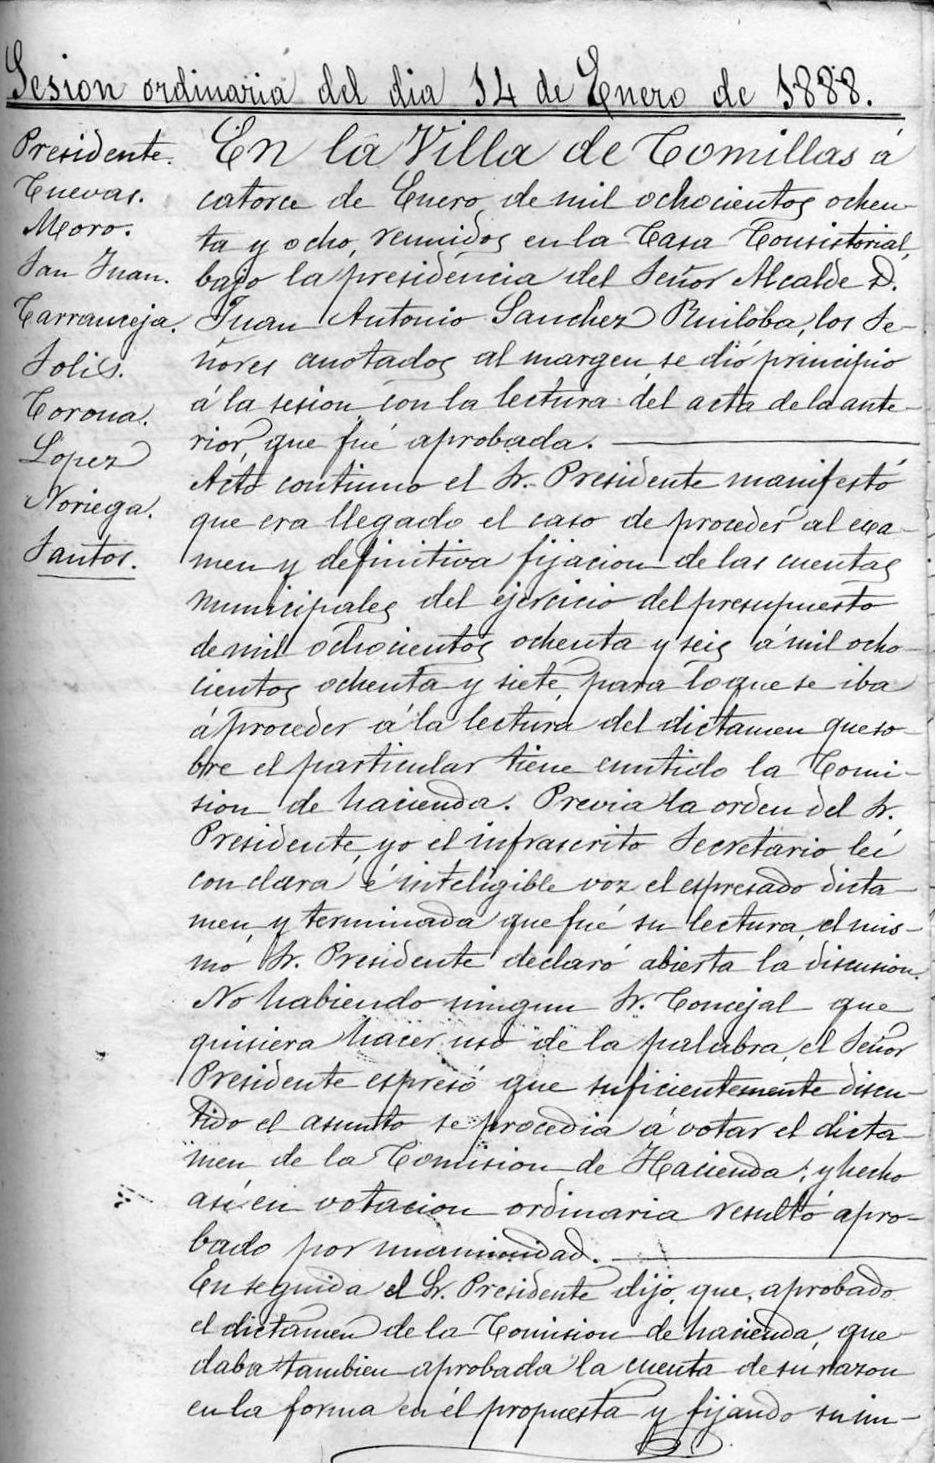 Sesion ordinaria del dia 14 de Enero de 1888.
Presidente.
Cuevas.
Moro.
San Juan.
Carranceja.
Solis.
Corona.
Lopez
Noriega.
Santos.
En la Villa de Comillas á
catorce de Enero de mil ochocientos ochen-
ta y ocho, reunidos en la Casa Consistorial,
bajo la presidencia del Señor Alcalde D.
Juan Antonio Sanchez Ruilóba, los Se-
ñores anotados al margen, se dió principio
á la sesion con la lectura del acta de la ante-
rior, que fué aprobada.
Acto continuo el Sr. Presidente manifestó
que era llegado el caso de proceder al exa-
men y definitiva fijacion de las cuentas
municipales del ejercicio del presupuesto
de mil ochocientos ochenta y seis á mil ocho-
cientos ochenta y siete, para lo que se iba
á proceder á la lectura del dictamen que so-
bre el particular tiene emitido la Comi-
sion de hacienda. Previa la orden del Sr.
Presidente, yo el infrascrito Secretario lei
con clara é inteligible voz el espresado dicta-
men, y terminada que fué su lectura, el mis-
mo Sr. Presidente declaró abierta la discusion.
No habiendo ningun Sr. Concejal que
quisiera hacer uso de la palabra, el Señor
Presidente espresó que suficientemente discu-
tido el asunto se procedia á votar el dicta-
men de la Comision de Hacienda; y hecho
asi en votacion ordinaria resultó apro-
bado por unanimidad.
En seguida el Sr. Presidente dijo, que, aprobado
el dictamen de la Comision de hacienda, que-
daba tambien aprobada la cuenta de su razon
en la forma en él propuesta y fijando su im-